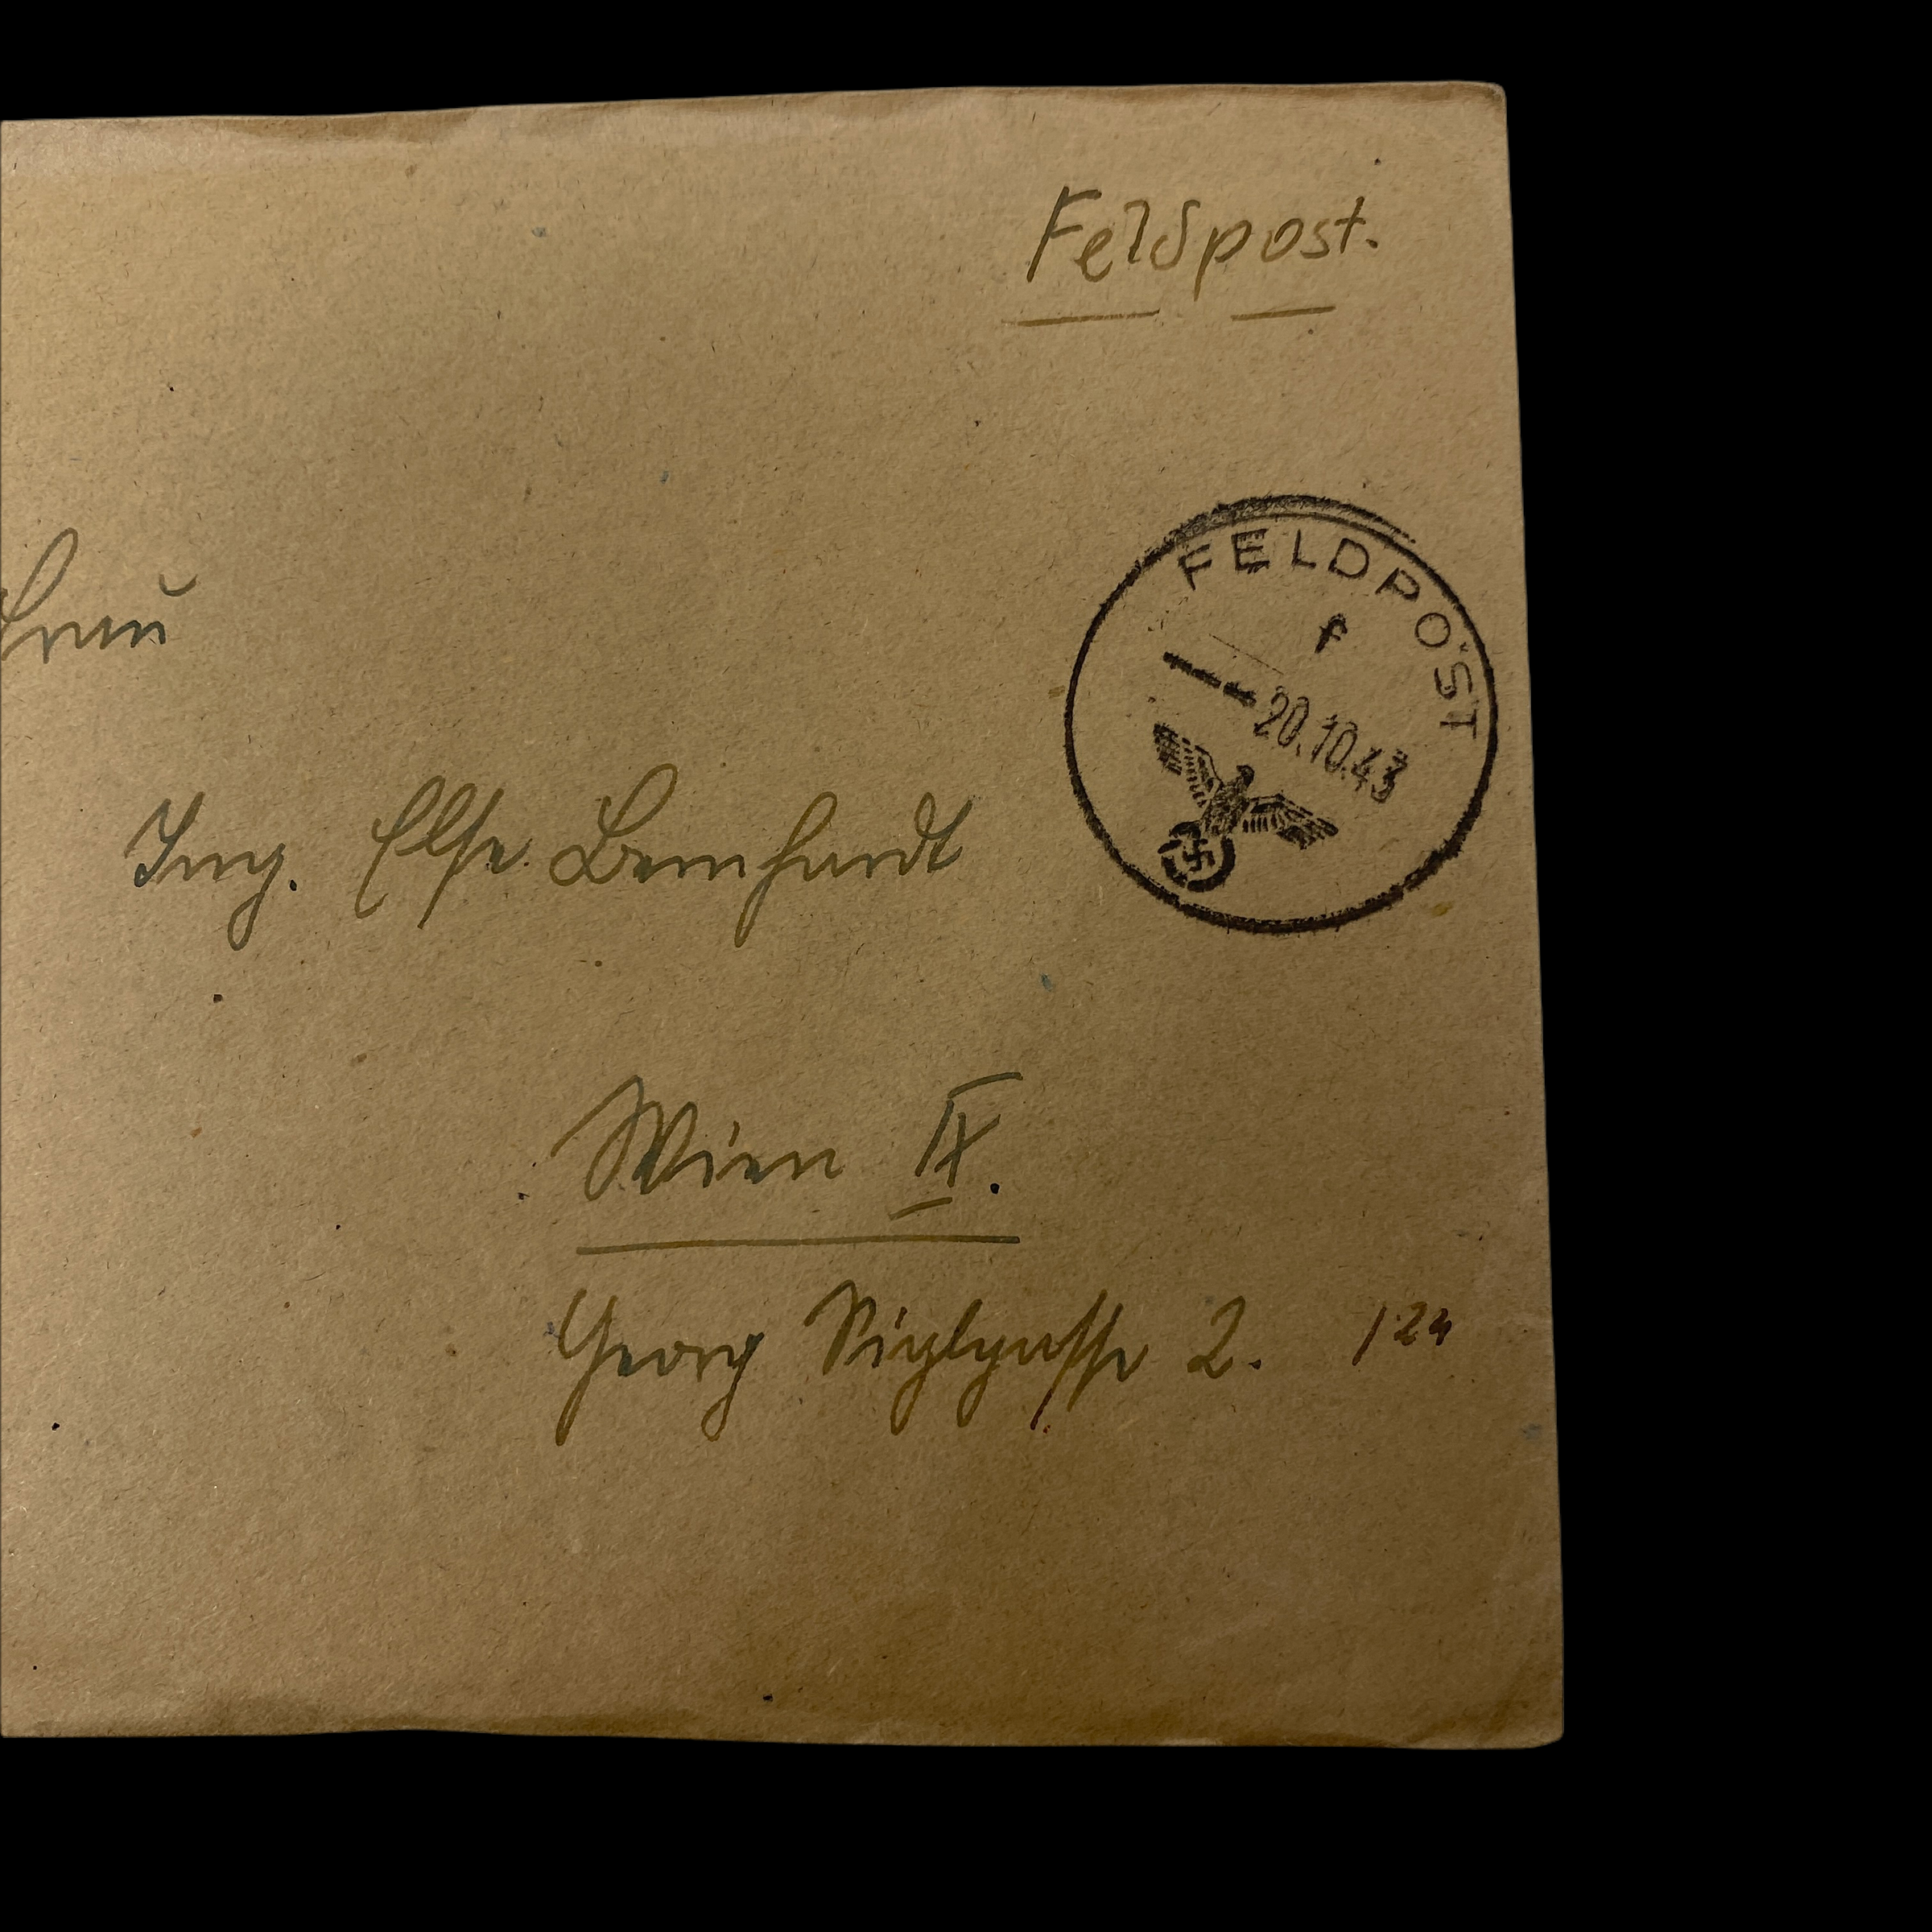 Feldpost.
FELDPOST
f
20.10.43
Frau
Ing. Else Bernhardt
Wien IX.
Georg Siglgasse 2. /24